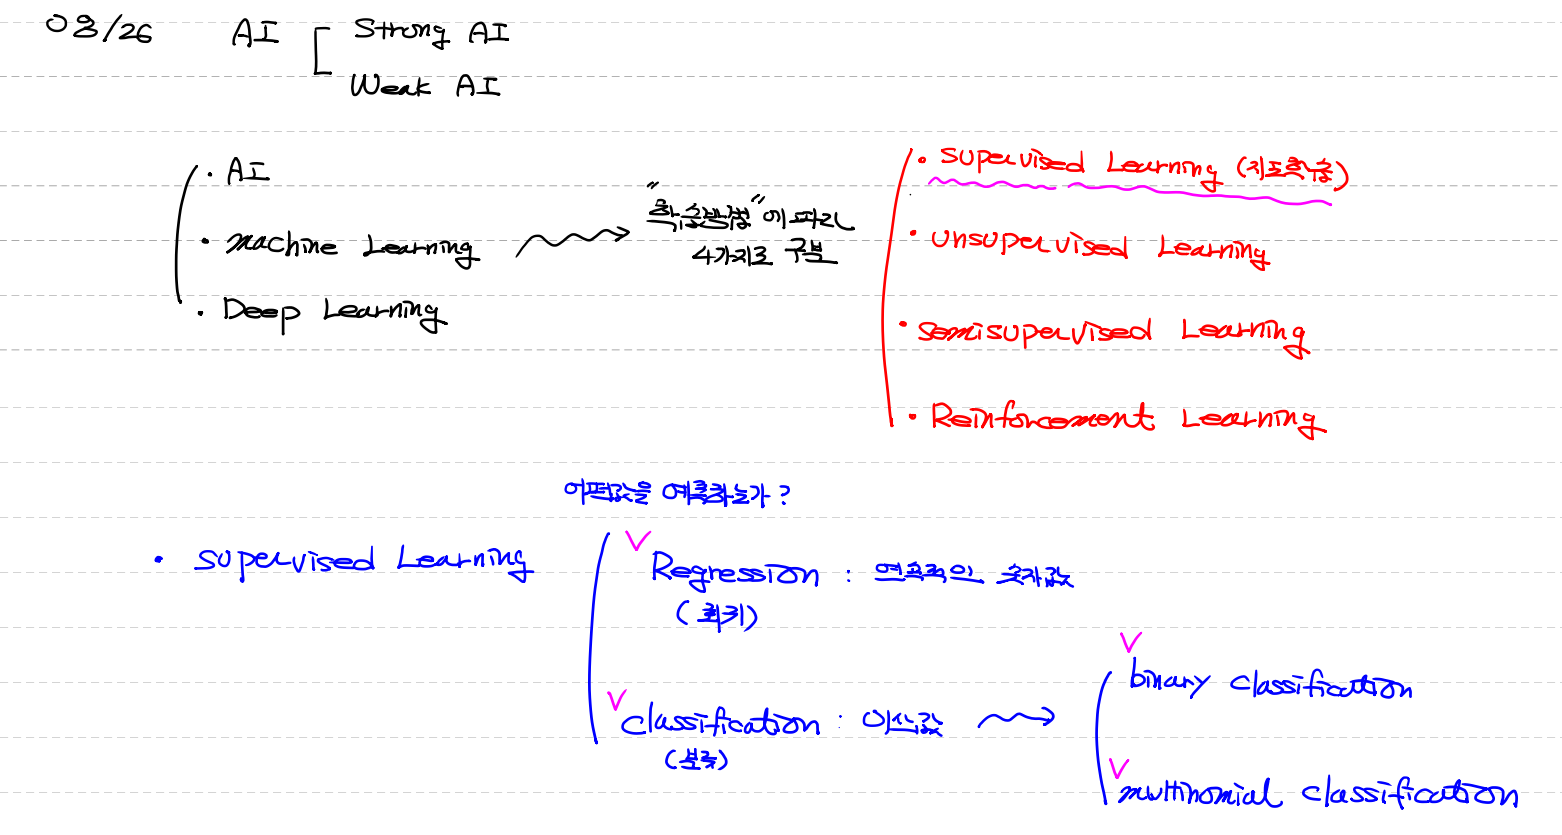 08/26 AI Strong AI
Weak AI
· AI
· machine Learning
· Deep Learning
"학습방법"에 따라
4가지로 구분
· supervised Learning (지도학습)
· unsupervised Learning
· semisupervised Learning
· Reinforcement Learning
어떤값을 예측하는가?
· supervised Learning
Regression : 연속적인 숫자값
(회귀)
classification : 이산값
(분류)
binary classification
multinomial classification